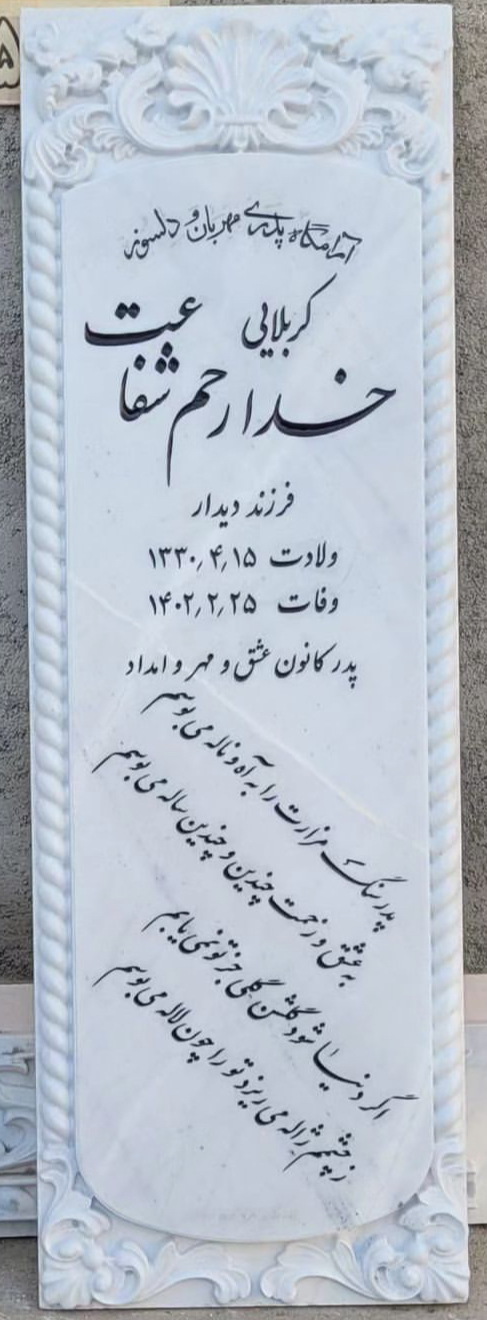 آرامگاه پدری مهربان و دلسوز
کربلایی
خدارحم شفاعت
فرزند دیدار
ولادت ۱۳۳۰٫۴٫۱۵
وفات ۱۴۰۲٫۲٫۲۵
پدر کانون عشق و مهر و امداد
پدر سنگ مزارت را به آه و ناله می بوسم
به عشق و زحمت چندین و چندین ساله می بوسم
اگر دنیا شود گلشن گلی جز تو نمی یابم
ز چشمم ژاله می ریزد تو را چون لاله می بوسم
۵